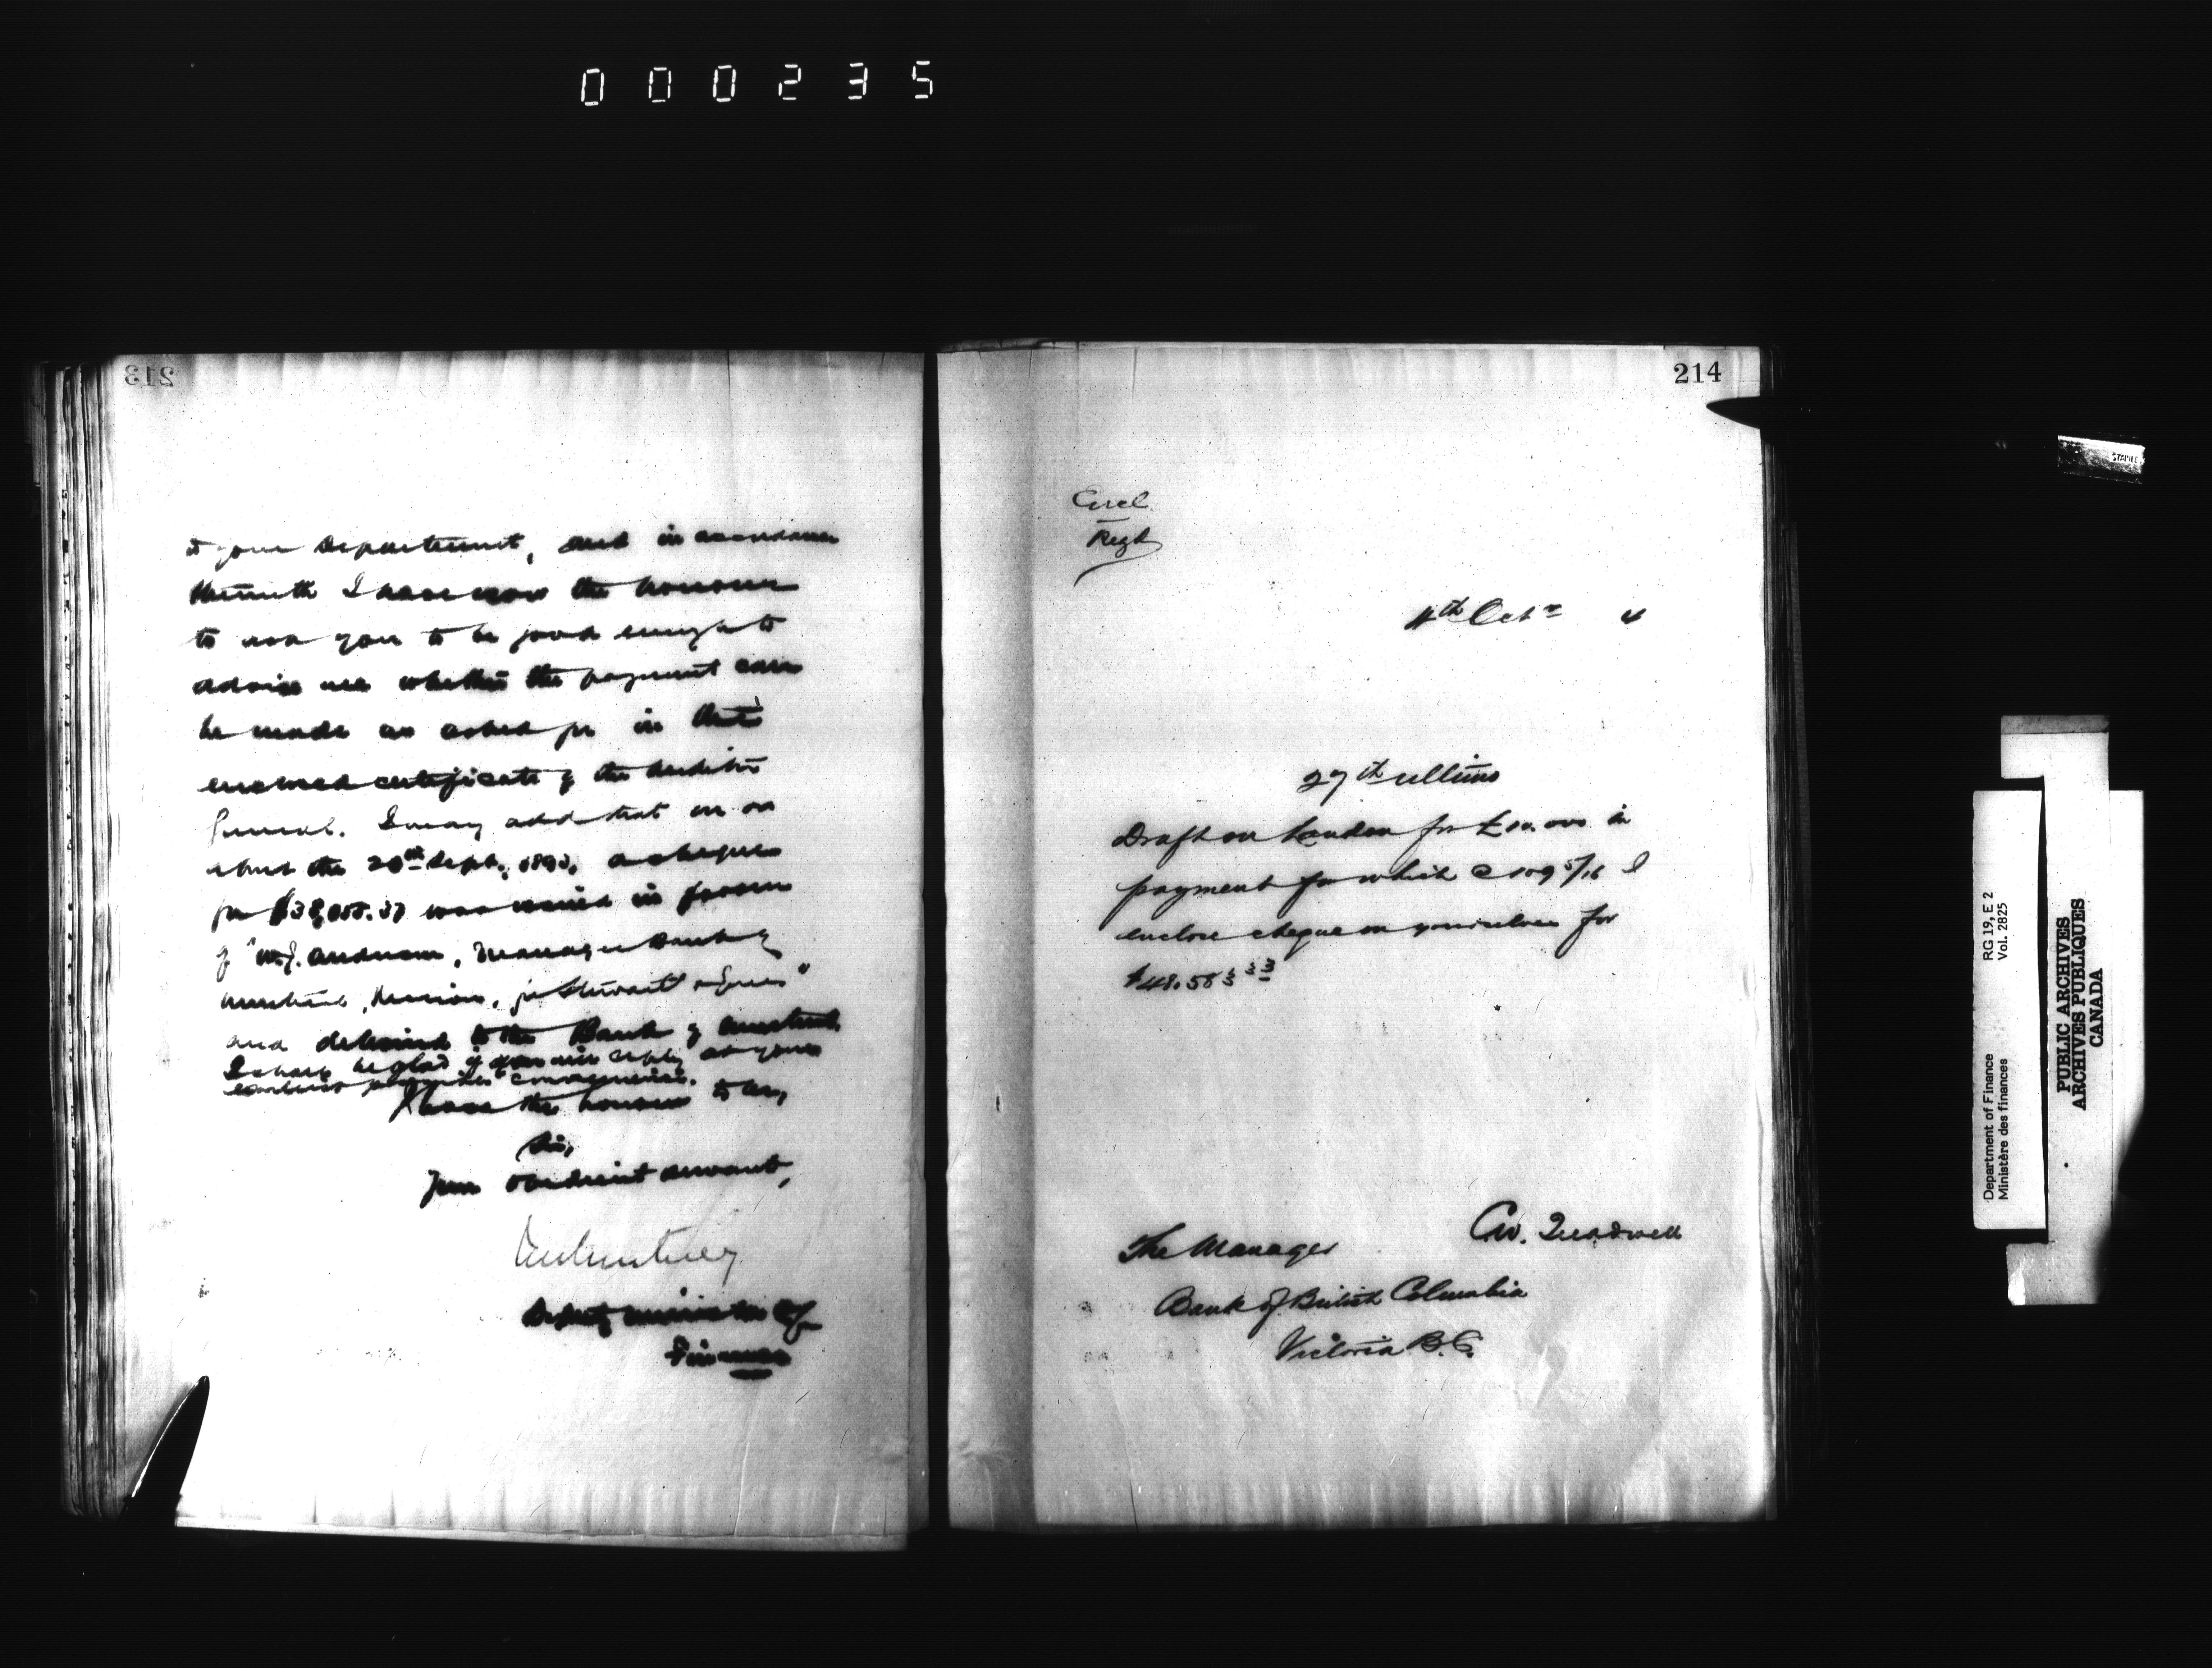 000235
213
to your Department, and in accordance
therewith I have now the honour
to ask you to be good enough to
advise me whether the payment can
be made as asked for in the
enclosed certificate of the Auditor
General. I may add that on or
about the 20th Sept., 1893, a cheque
for $38,055.37 was issued in favour
of "W.J. Anderson, Manager Bank of
Montreal, , for Stewart &
and delivered to the Bank of Montreal.
I shall be glad if you will reply at your
earliest convenience.
I have the honour to be,
Sir,
Your obedient servant,
J M Courtney
Deputy Minister of
Finance
214
Encl
Regd
4th Octr 4
27th ultimo
Draft on London for £10.000 in
payment for which @ 109 5/16 I
enclose cheque on yourselves for
$48.583 33
C.W. Treadwell
The Manager
Bank of British Columbia
Victoria B.C.
Department of Finance
Ministère des finances
RG 19, E 2
Vol. 2825
PUBLIC ARCHIVES
ARCHIVES PUBLIQUES
CANADA